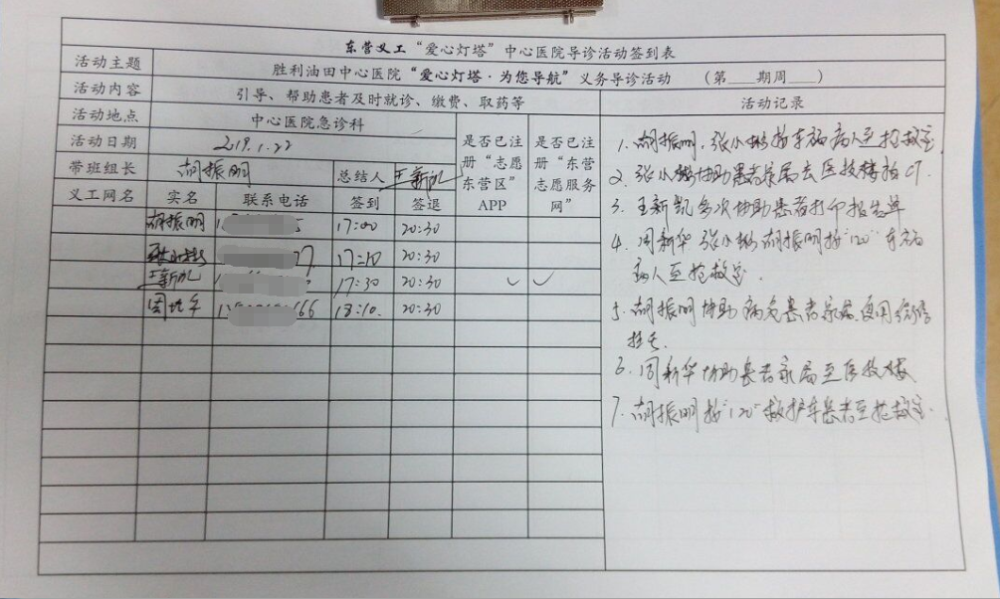 东营义工“爱心灯塔”中心医院导诊活动签到表
活动主题 胜利油田中心医院“爱心灯塔·为您导航”义务导诊活动 (第 期周 )
活动内容 引导、帮助患者及时就诊、缴费、取药等 活动记录
活动地点 中心医院急诊科
活动日期 2019.1.22
是否已注册“志愿东营区”APP
是否已注册“东营志愿服务网”
带班组长 胡振明 总结人 王新凯
义工网名 实名 联系电话 签到 签退
胡振明 17:00 20:30
17:10 20:30
王新凯 17:30 20:30
周新华 666 18:10. 20:30
1. 胡振明,张小彬 病人至抢救室
2. 张小彬协助患者家属去医技楼拍CT.
3. 王新凯多次协助患者打印报告单
4. 周新华 张小彬 胡振明接“120”车
病人至抢救室.
5. 胡振明协助病危患者家属使用微信
挂号.
6. 周新华协助患者家属至医技楼
7. 胡振明接“120”救护车患者至抢救室.